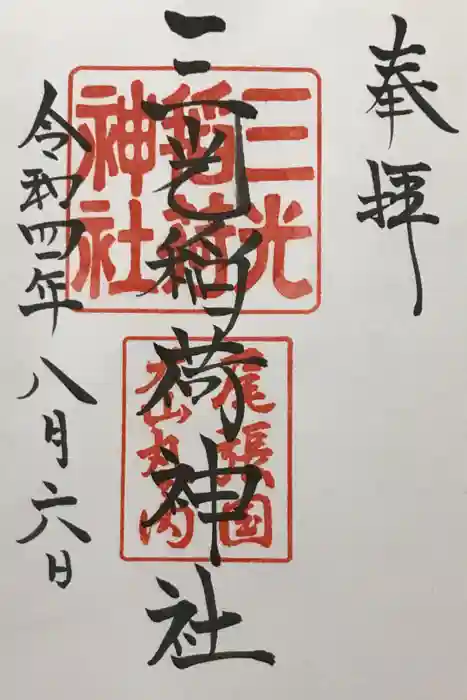 奉拝
三光稲荷神社
三光
稲荷
神社
尾張国
犬山丸の内
令和四年八月六日